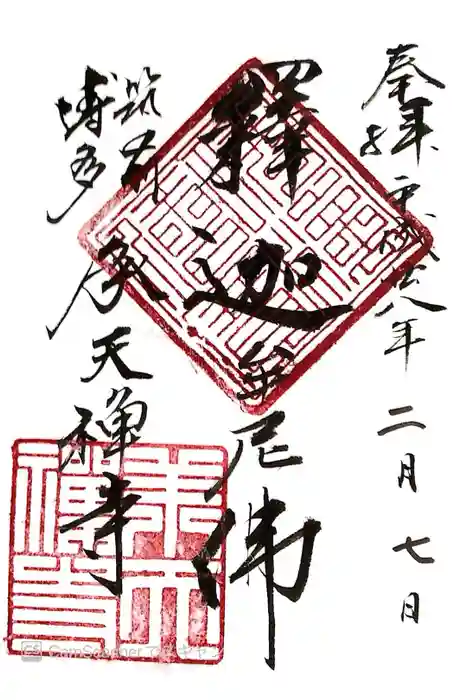 奉拜 平成廿八年 二月 七日
釋迦牟尼佛
筑前
博多
承天禅寺
承天
禪寺
CS CamScanner でスキャン